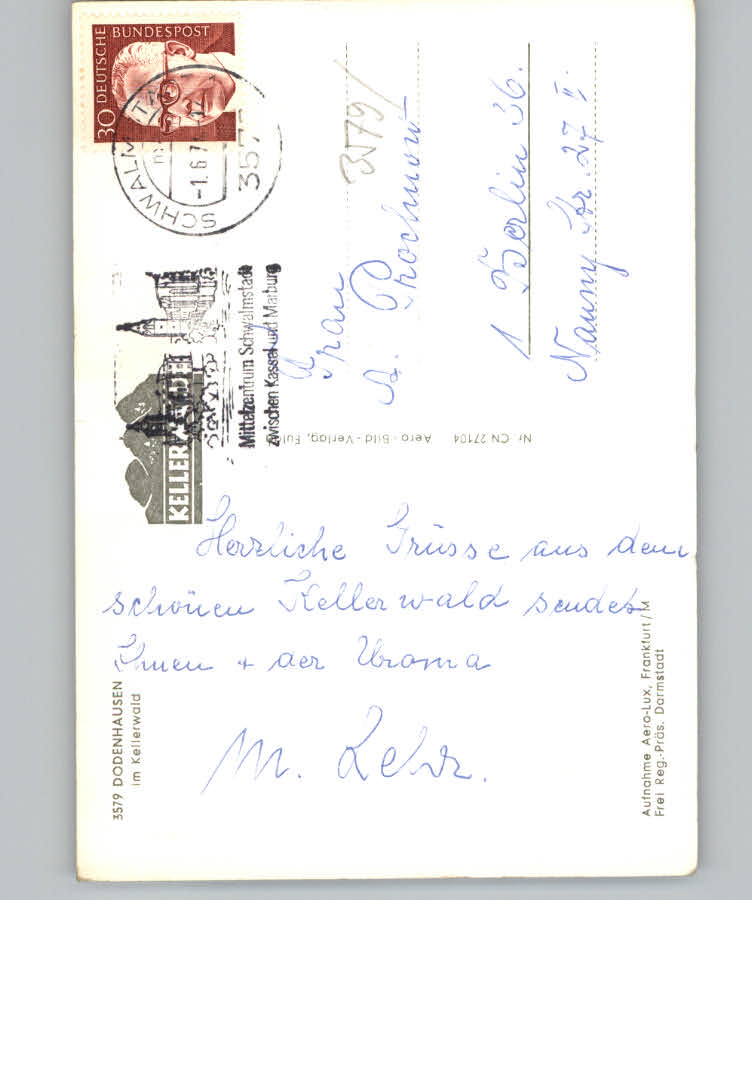 30 DEUTSCHE BUNDESPOST
SCHWALM
-1.6.7
357
3579/
Mittelzentrum Schwalmstadt
zwischen Kassel und Marburg
KELLERWALD
Frau
A. Prochnow
1 Berlin 36.
Naunny Str. 27 II.
Nr. CN 27104 Aero-Bild-Verlag,
Herzliche Grüsse aus dem
schönen Kellerwald sendet
Ihnen + der Uroma
M.
3579 DODENHAUSEN
im Kellerwald
Aufnahme Aero-Lux, Frankfurt/M
Frei Reg.-Präs. Darmstadt